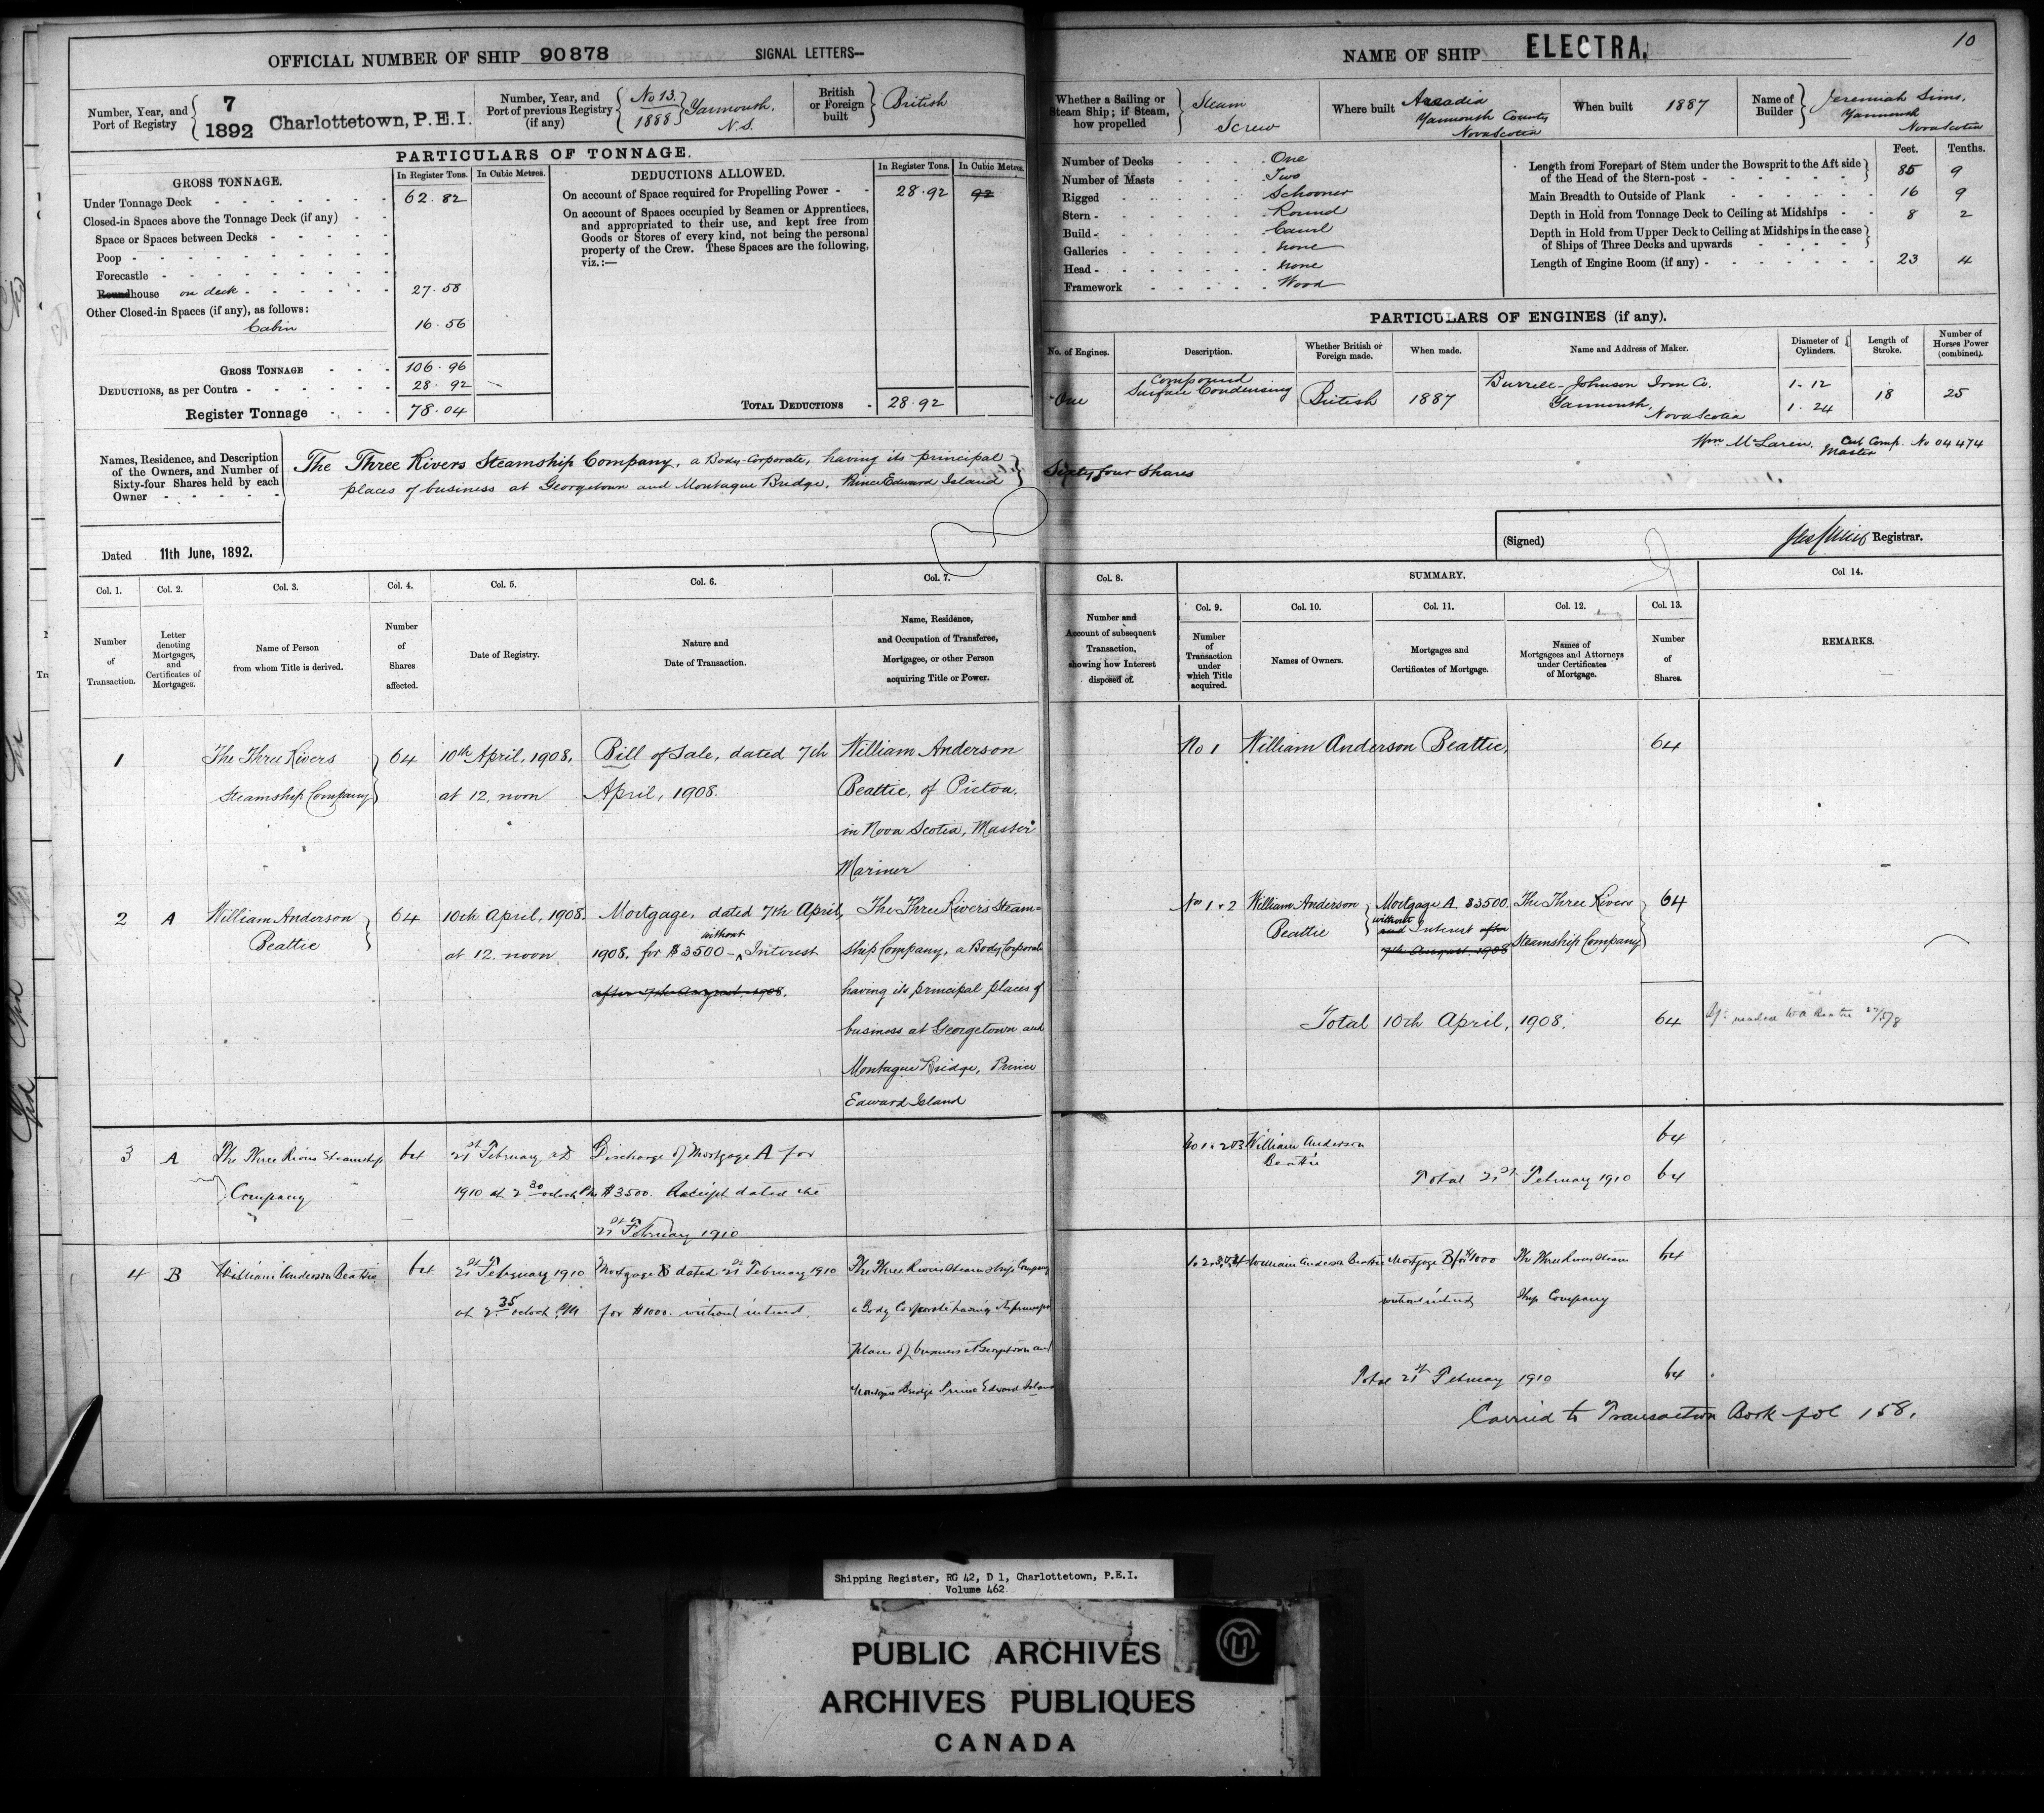 OFFICIAL NUMBER OF SHIP 90878 SIGNAL LETTERS—
Number, Year, and Port of Registry
7
1892
Charlottetown, P.E.I.
Number, Year, and Port of previous Registry (if any)
No 13.
1888
Yarmouth, N.S.
British or Foreign built
British
PARTICULARS OF TONNAGE.
GROSS TONNAGE. In Register Tons. In Cubic Metres.
Under Tonnage Deck 62.82
Closed-in Spaces above the Tonnage Deck (if any)
Space or Spaces between Decks
Poop
Forecastle
Roundhouse on deck 27.58
Other Closed-in Spaces (if any), as follows:
Cabin 16.56
GROSS TONNAGE 106.96
DEDUCTIONS, as per Contra 28.92
Register Tonnage 78.04
DEDUCTIONS ALLOWED. In Register Tons. In Cubic Metres.
On account of Space required for Propelling Power 28.92 92
On account of Spaces occupied by Seamen or Apprentices,
and appropriated to their use, and kept free from
Goods or Stores of every kind, not being the personal
property of the Crew. These Spaces are the following,
viz.:—
TOTAL DEDUCTIONS 28.92
Names, Residence, and Description
of the Owners, and Number of
Sixty-four Shares held by each
Owner
The Three Rivers Steamship Company, a Body-Corporate, having its principal
places of business at Georgetown and Montague Bridge, Prince Edward Island
Dated 11th June, 1892.
NAME OF SHIP ELECTRA.
10
Whether a Sailing or
Steam Ship; if Steam,
how propelled
Steam
Screw
Where built
Arcadia
Yarmouth County
Nova Scotia
When built 1887
Name of Builder
Jeremiah Sims,
Yarmouth
Nova Scotia
Number of Decks One
Number of Masts Two
Rigged Schooner
Stern Round
Build Carvel
Galleries None
Head None
Framework Wood
Feet. Tenths.
Length from Forepart of Stem under the Bowsprit to the Aft side
of the Head of the Stern-post 85 9
Main Breadth to Outside of Plank 16 9
Depth in Hold from Tonnage Deck to Ceiling at Midships 8 2
Depth in Hold from Upper Deck to Ceiling at Midships in the case
of Ships of Three Decks and upwards
Length of Engine Room (if any) 23 4
PARTICULARS OF ENGINES (if any).
No. of Engines. Description. Whether British or Foreign made. When made. Name and Address of Maker. Diameter of Cylinders. Length of Stroke. Number of Horses Power (combined).
One
Compound
Surface Condensing
British
1887
Burrell-Johnson Iron Co.
Yarmouth,
Nova Scotia
1-12
1.24
18
25
Wm McLaren, Cert Comp. No 04474
Master
Sixty four Shares
(Signed) Registrar.
Col. 1. Col. 2. Col. 3. Col. 4. Col. 5. Col. 6. Col. 7.
Number of Transaction.
Letter denoting Mortgages, and Certificates of Mortgages.
Name of Person from whom Title is derived.
Number of Shares affected.
Date of Registry.
Nature and Date of Transaction.
Name, Residence, and Occupation of Transferee, Mortgagee, or other Person acquiring Title or Power.
Col. 8. SUMMARY. Col 14.
Number and Account of subsequent Transaction, showing how Interest disposed of.
Col. 9. Col. 10. Col. 11. Col. 12. Col. 13.
Number of Transaction under which Title acquired.
Names of Owners.
Mortgages and Certificates of Mortgage.
Names of Mortgagees and Attorneys under Certificates of Mortgage.
Number of Shares.
REMARKS.
1
The Three Rivers
Steamship Company
64
10th April, 1908,
at 12, noon
Bill of Sale, dated 7th
April, 1908.
William Anderson
Beattie, of Pictou,
in Nova Scotia, Master
Mariner
No 1 William Anderson Beattie, 64
2 A
William Anderson
Beattie
64
10th April, 1908.
at 12. noon
Mortgage, dated 7th April,
1908, for $3500 - without Interest
after 7th August, 1908.
The Three Rivers Steam-
ship Company, a Body Corporate
having its principal places of
business at Georgetown and
Montague Bridge, Prince
Edward Island
Nos 1 & 2
William Anderson
Beattie
Mortgage A. $3500.
without
and Interest after
7th August. 1908
The Three Rivers
Steamship Company
64
Total 10th April, 1908. 64
3 A
The Three Rivers Steamship
Company
64
21st February
1910 at 2 30 oclock Pm
Discharge of Mortgage A for
$3500. Receipt dated the
21st February 1910
William Anderson
Beattie
64
Total 21st February 1910 64
4 B
William Anderson Beattie
64
21st February 1910
at 2 35 oclock PM
Mortgage B dated 21st February 1910
for $1000. without interest.
The Three Rivers Steamship Company
a Body Corporate having its principal
places of business at Georgetown and
Montague Bridge Prince Edward Island
1. 2. 3. & 4
William Anderson Beattie
Mortgage B for $1000
without interest
The Three Rivers Steam
Ship Company
64
Total 21st February 1910 64
Carried to Transaction Book fol 158.
Shipping Register, RG 42, D 1, Charlottetown, P.E.I.
Volume 462
PUBLIC ARCHIVES
ARCHIVES PUBLIQUES
CANADA